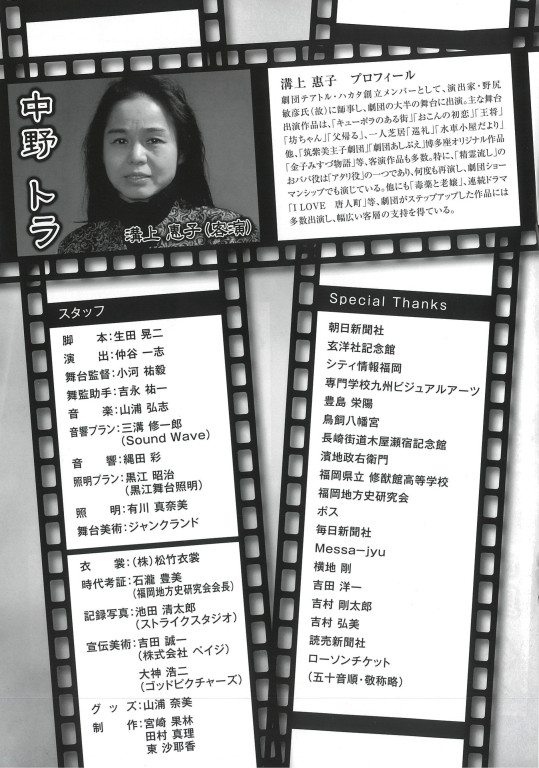 中野 トラ
溝上 惠子(客演)
溝上 惠子 プロフィール
劇団テアトル・ハカタ創立メンバーとして、演出家・野尻
敏彦氏(故)に師事し、劇団の大半の舞台に出演。主な舞台
出演作品は、「キューポラのある街」「おこんの初恋」「王将」
「坊ちゃん」「父帰る」、一人芝居「巡礼」「水車小屋だより」
他、「筑紫美主子劇団」「劇団あしぶえ」博多座オリジナル作品
「金子みすゞ物語」等、客演作品も多数。特に、「精霊流し」の
おババ役は「アタリ役」の一つであり、何度も再演し、劇団ショー
マンシップでも演じている。他にも「毒薬と老嬢」、連続ドラマ
「I LOVE 唐人町」等、劇団がステップアップした作品には
多数出演し、幅広い客層の支持を得ている。
スタッフ
脚 本:生田 晃二
演 出:仲谷 一志
舞台監督:小河 祐毅
舞監助手:吉永 祐一
音 楽:山浦 弘志
音響プラン:三溝 修一郎
(Sound Wave)
音 響:縄田 彩
照明プラン:黒江 昭治
(黒江舞台照明)
照 明:有川 真奈美
舞台美術:ジャンクランド
衣 裳:(株)松竹衣裳
時代考証:石瀧 豊美
(福岡地方史研究会会長)
記録写真:池田 清太郎
(ストライクスタジオ)
宣伝美術:吉田 誠一
(株式会社 ベイジ)
大神 浩二
(ゴッドピクチャーズ)
グ ッ ズ:山浦 奈美
制 作:宮崎 果林
田村 真理
東 沙耶香
Special Thanks
朝日新聞社
玄洋社記念館
シティ情報福岡
専門学校九州ビジュアルアーツ
豊島 栄陽
鳥飼八幡宮
長崎街道木屋瀬宿記念館
濱地政右衛門
福岡県立 修猷館高等学校
福岡地方史研究会
ボス
毎日新聞社
Messa−jyu
横地 剛
吉田 洋一
吉村 剛太郎
吉村 弘美
読売新聞社
ローソンチケット
(五十音順・敬称略)